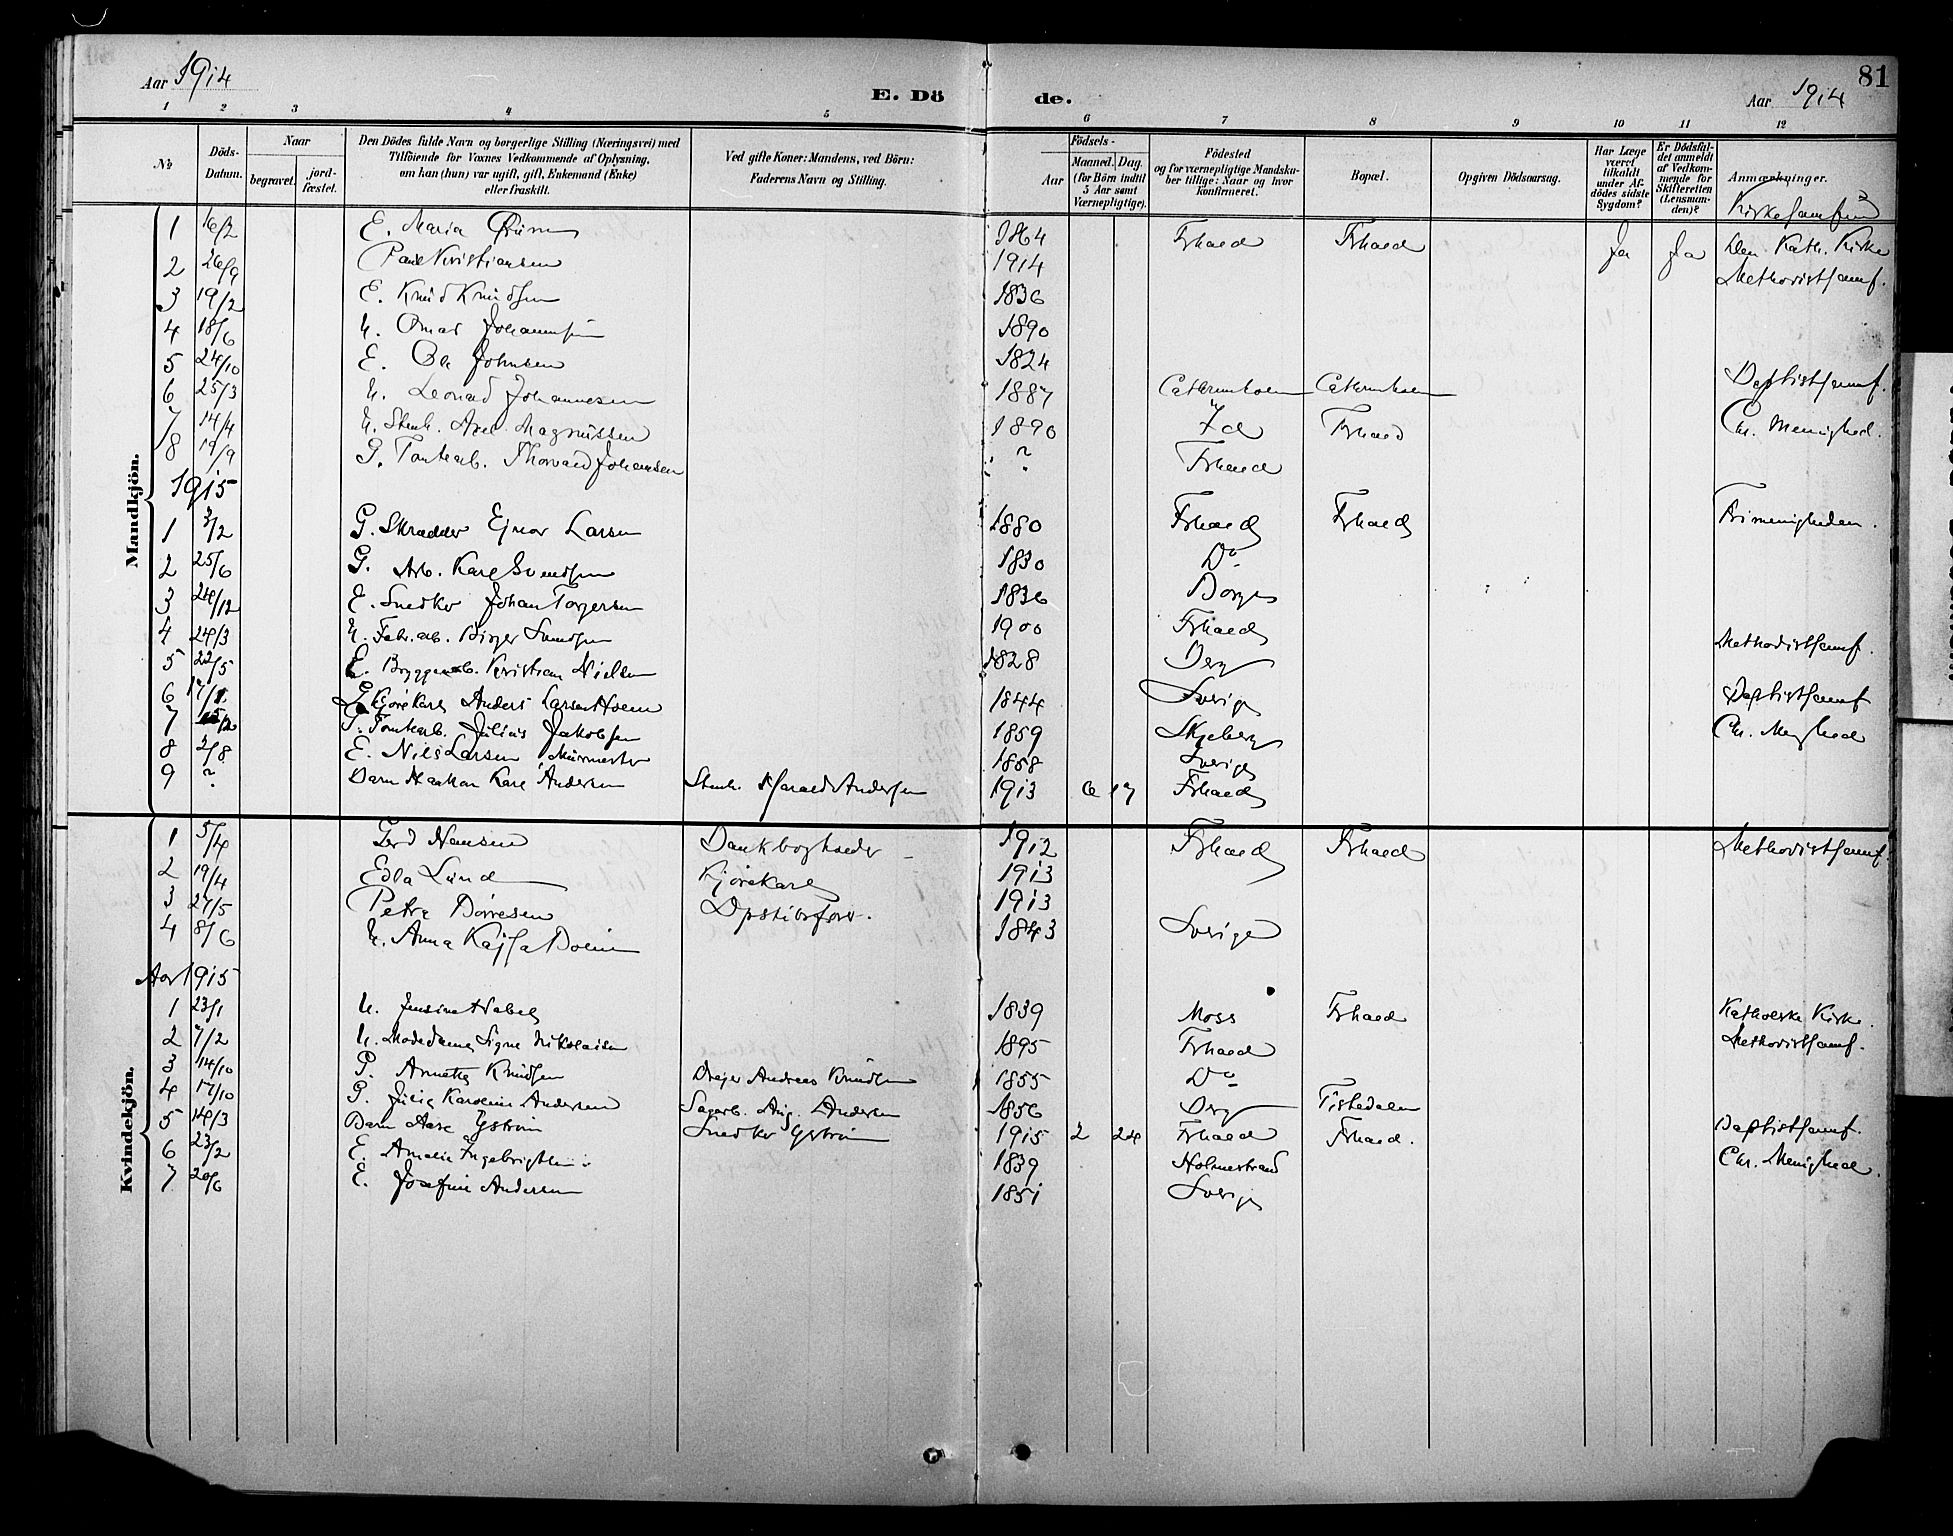 Aar 1914
E. Dö
de.
Aar 1914
81
1 2 3 4 5 6 7 8 9 10 11 12
№
Döds-Datum.
Naar
begravet.
jord-fæstet.
Den Dödes fulde Navn og borgerlige Stilling (Næringsvei) med
Tilföiende for Voxnes Vedkommende af Oplysning,
om han (hun) var ugift, gift, Enkemand (Enke)
eller fraskilt.
Ved gifte Koner: Mandens, ved Börn:
Faderens Navn og Stilling.
Födsels-
Aar
Maaned.
Dag.
(for Börn indtil
5 Aar samt
Værnepligtige).
Födested
og for værnepligtige Mandsku-
ber tillige: Naar og hvor
konfirmeret.
Bopæl.
Opgiven Dödsaarsag.
Har Læge
været
tilkaldt
under Af-
dödes sidste
Sygdom?
Er Dödsfal-
det anmeldt
af Vedkom-
mende for
Skifteretten
(Lensman-
den)?
Anmærkninger.
Kirkesamfund
Mandkjön.
1 16/2 E. Maria 1864 Frhald Frhald Ja Ja Den Kath. Kirke
2 26/9 Paul Kristiansen 1914 Methodistsamf.
3 19/2 E. Knud Knudsen 1836
4 18/6 U. Omar Johannsen 1890
5 24/10 E. Ole Johnsen 1824
6 25/3 U. Leonard Johannesen 1887 Cathrinholm Cathrinholm Baptistsamf.
7 14/4 U. Stenh. Axel Magnussen 1890 Id Frhald Chr. Menighed.
8 19/9 G. Tomtarb. Thorvald Johansen ? Frhald
1915
1 3/2 G. Skrædder Ejnar Larsen 1880 Frhald Frhald Frimenigheden.
2 25/6 G. Arb. Karl Svendsen 1830 Do
3 24/12 E. Snedker Johan Torgersen 1836 Borge
4 24/3 U. Fabr.arb. Birger Svendsen 1900 Frhald Methodistsamf.
5 22/5 E. Bryggearb. Kristian Nielsen 1828 Berg
6 17/1 G. Kjørekarl Anders Larsen Holm 1844 Sverige Baptistsamf
7 15/2 G. Tomtarb. Julius Jakobsen 1859 Skjeberg Chr. Meghed
8 2/8 E. Nils Larsen Murmester 1858 Sverige
9 ? Barn Haakon Karl Andersen Stenh. Harald Andersen 1913 6 17 Frhald
Kvindekjön.
1 5/4 Gerd Hansen Bankbogholder 1912 Frhald Frhald Methodistsamf.
2 19/4 Edla Lund Kjørekarl 1913
3 27/5 Petra Børresen 1913
4 8/6 U. Anna Kajsa Bolin 1843 Sverige
Aar 1915
1 23/1 U. Jensine Habel 1839 Moss Frhald Katholske Kirke.
2 7/2 U. Modedame Signe Nikolaisen 1895 Frhald Methodistsamf.
3 14/10 G. Annette Knudsen Drejer Andreas Knudsen 1855 Do
4 17/10 G. Julie Karoline Andersen Sagarb. Aug. Andersen 1856 Berg Tistedalen
5 14/3 Barn Aase Ystrøm Snedker Ystrøm 1915 2 24 Frhald Frhald. Baptistsamf.
6 23/2 E. Amalie Ingebrigtsen 1839 Holmestrand Chr. Menighed.
7 20/6 E. Josefine Andersen 1851 Sverige